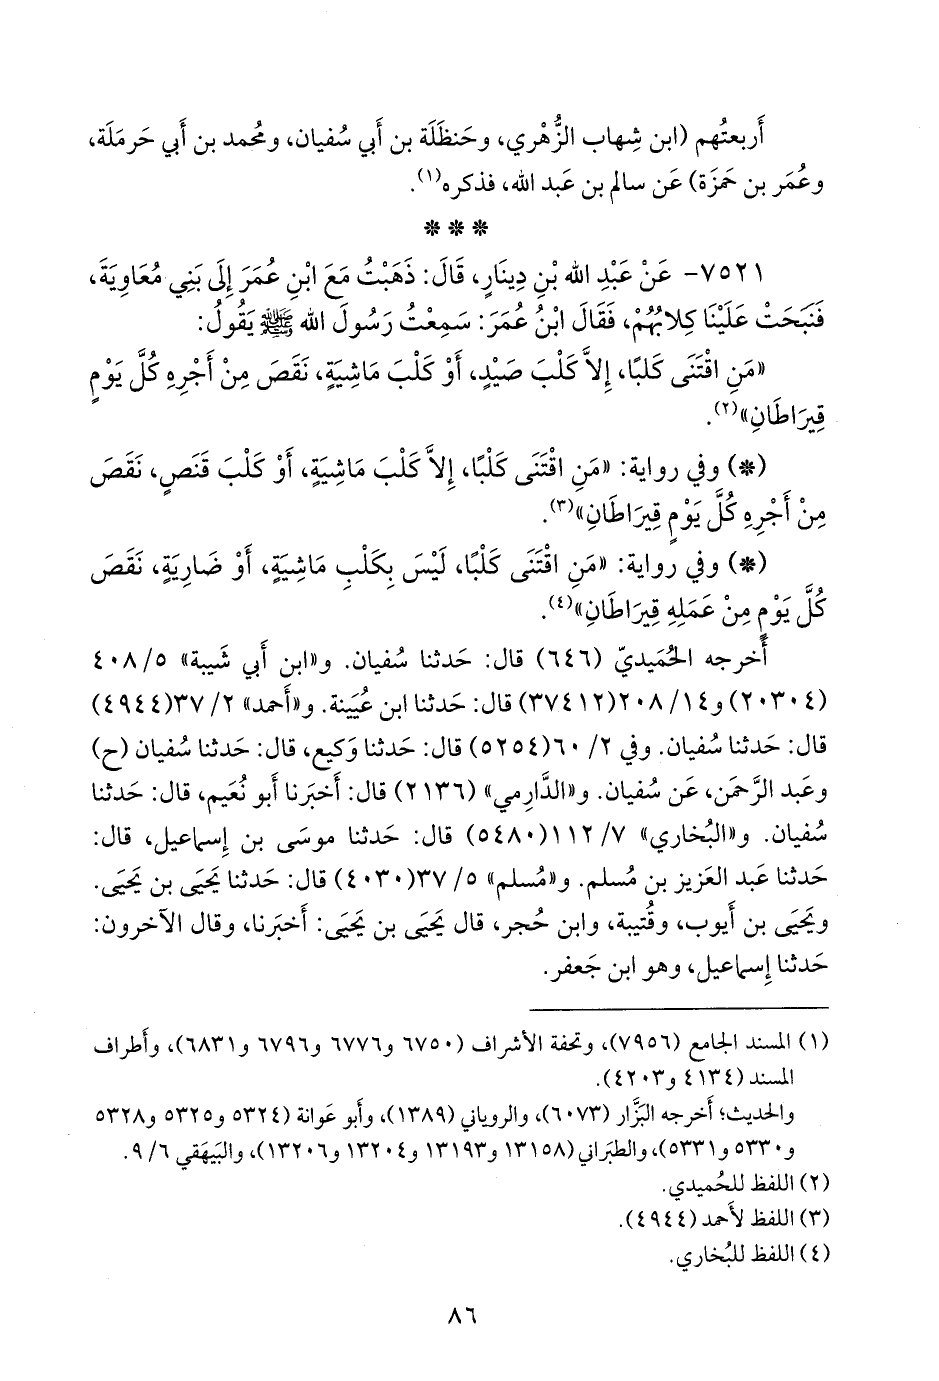 أَربعتُهم (ابن شِهاب الزُّهْري، وحَنظَلَة بن أَبي سُفيان، ومُحمد بن أَبي حَرمَلَة،
وعُمَر بن حَمزَة) عَن سالم بن عَبد الله، فذكره(١).
* * *
٧٥٢١- عَنْ عَبْدِ الله بْنِ دِينَارٍ، قَالَ: ذَهَبْتُ مَعَ ابْنِ عُمَرَ إِلَى بَنِي مُعَاوِيَةَ،
فَنَبَحَتْ عَلَيْنَا كِلابُهُمْ، فَقَالَ ابْنُ عُمَرَ: سَمِعْتُ رَسُولَ الله ﷺ يَقُولُ:
«مَنِ اقْتَنَى كَلبًا، إِلاَّ كَلْبَ صَيْدٍ، أَوْ كَلْبَ مَاشِيَةٍ، نَقَصَ مِنْ أَجْرِهِ كُلَّ يَوْمٍ
قِيرَاطَانِ»(٢).
(*) وفي رواية: «مَنِ اقْتَنَى كَلْبًا، إِلاَّ كَلْبَ مَاشِيَةٍ، أَوْ كَلْبَ قَنَصٍ، نَقَصَ
مِنْ أَجْرِهِ كُلَّ يَوْمٍ قِيرَاطَانِ»(٣).
(*) وفي رواية: «مَنِ اقْتَنَى كَلْبًا، لَيْسَ بِكَلْبِ مَاشِيَةٍ، أَوْ ضَارِيَةٍ، نَقَصَ
كُلَّ يَوْمٍ مِنْ عَمَلِهِ قِيرَاطَانِ»(٤).
أَخرجه الحُمَيديّ (٦٤٦) قال: حَدثنا سُفيان. و«ابن أَبي شَيبة» ٥/ ٤٠٨
(٢٠٣٠٤) و١٤/ ٢٠٨(٣٧٤١٢) قال: حَدثنا ابن عُيَينة. و«أَحمد» ٢/ ٣٧(٤٩٤٤)
قال: حَدثنا سُفيان. وفي ٢/ ٦٠(٥٢٥٤) قال: حَدثنا وَكيع، قال: حَدثنا سُفيان (ح)
وعَبد الرَّحمَن، عَن سُفيان. و«الدَّارِمي» (٢١٣٦) قال: أَخبَرنا أَبو نُعَيم، قال: حَدثنا
سُفيان. و«البُخاري» ٧/ ١١٢(٥٤٨٠) قال: حَدثنا موسَى بن إِسماعيل، قال:
حَدثنا عَبد العَزيز بن مُسلم. و«مُسلم» ٥/ ٣٧(٤٠٣٠) قال: حَدثنا يَحيَى بن يَحيَى.
ويَحيَى بن أَيوب، وقُتيبة، وابن حُجر، قال يَحيَى بن يَحيَى: أَخبَرنا، وقال الآخرون:
حَدثنا إِسماعيل، وهو ابن جَعفر.
(١) المسند الجامع (٧٩٥٦)، وتحفة الأشراف (٦٧٥٠ و٦٧٧٦ و٦٧٩٦ و٦٨٣١)، وأَطراف
المسند (٤١٣٤ و٤٢٠٣).
والحديث؛ أَخرجه البَزَّار (٦٠٧٣)، والروياني (١٣٨٩)، وأَبو عَوانة (٥٣٢٤ و٥٣٢٥ و٥٣٢٨
و٥٣٣٠ و٥٣٣١)، والطبَراني (١٣١٥٨ و١٣١٩٣ و١٣٢٠٤ و١٣٢٠٦)، والبَيهَقي ٦/ ٩.
(٢) اللفظ للحُميدي.
(٣) اللفظ لأَحمد (٤٩٤٤).
(٤) اللفظ للبُخاري.
٨٦